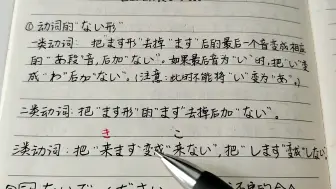 ① 动词的"ない形"
一类动词: 把"ます形"去掉"ます"后的最后一个音变成相应
的"あ段"音, 后加"ない"。如果最后音为"い"时, 把"い"变
成"わ"后加"ない"。(注意: 此时不能将"い"变为"あ"。)
二类动词: 把"ます形"的"ます"去掉后加"ない"。
き こ
三类动词: 把"来ます"变成"来ない", 把"します"变成"しない